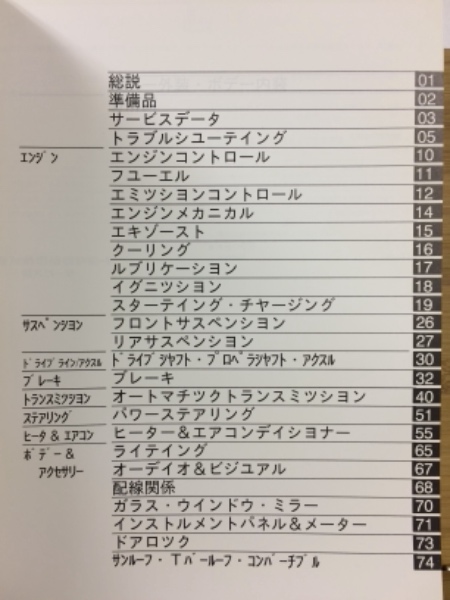 総説 01
準備品 02
サービスデータ 03
トラブルシユーテイング 05
エンジン エンジンコントロール 10
フユーエル 11
エミツシヨンコントロール 12
エンジンメカニカル 14
エキゾースト 15
クーリング 16
ルブリケーシヨン 17
イグニツシヨン 18
スターテイング・チャージング 19
サスペンション フロントサスペンシヨン 26
リアサスペンシヨン 27
ドライブライン/アクスル ドライブシャフト・プロペラシャフト・アクスル 30
ブレーキ ブレーキ 32
トランスミツシヨン オートマチツクトランスミツシヨン 40
ステアリング パワーステアリング 51
ヒータ & エアコン ヒーター&エアコンデイシヨナー 55
ボデー & ライテイング 65
アクセサリー オーデイオ&ビジユアル 67
配線関係 68
ガラス・ウインドウ・ミラー 70
インストルメントパネル&メーター 71
ドアロツク 73
サンルーフ・Tバールーフ・コンバーチブル 74